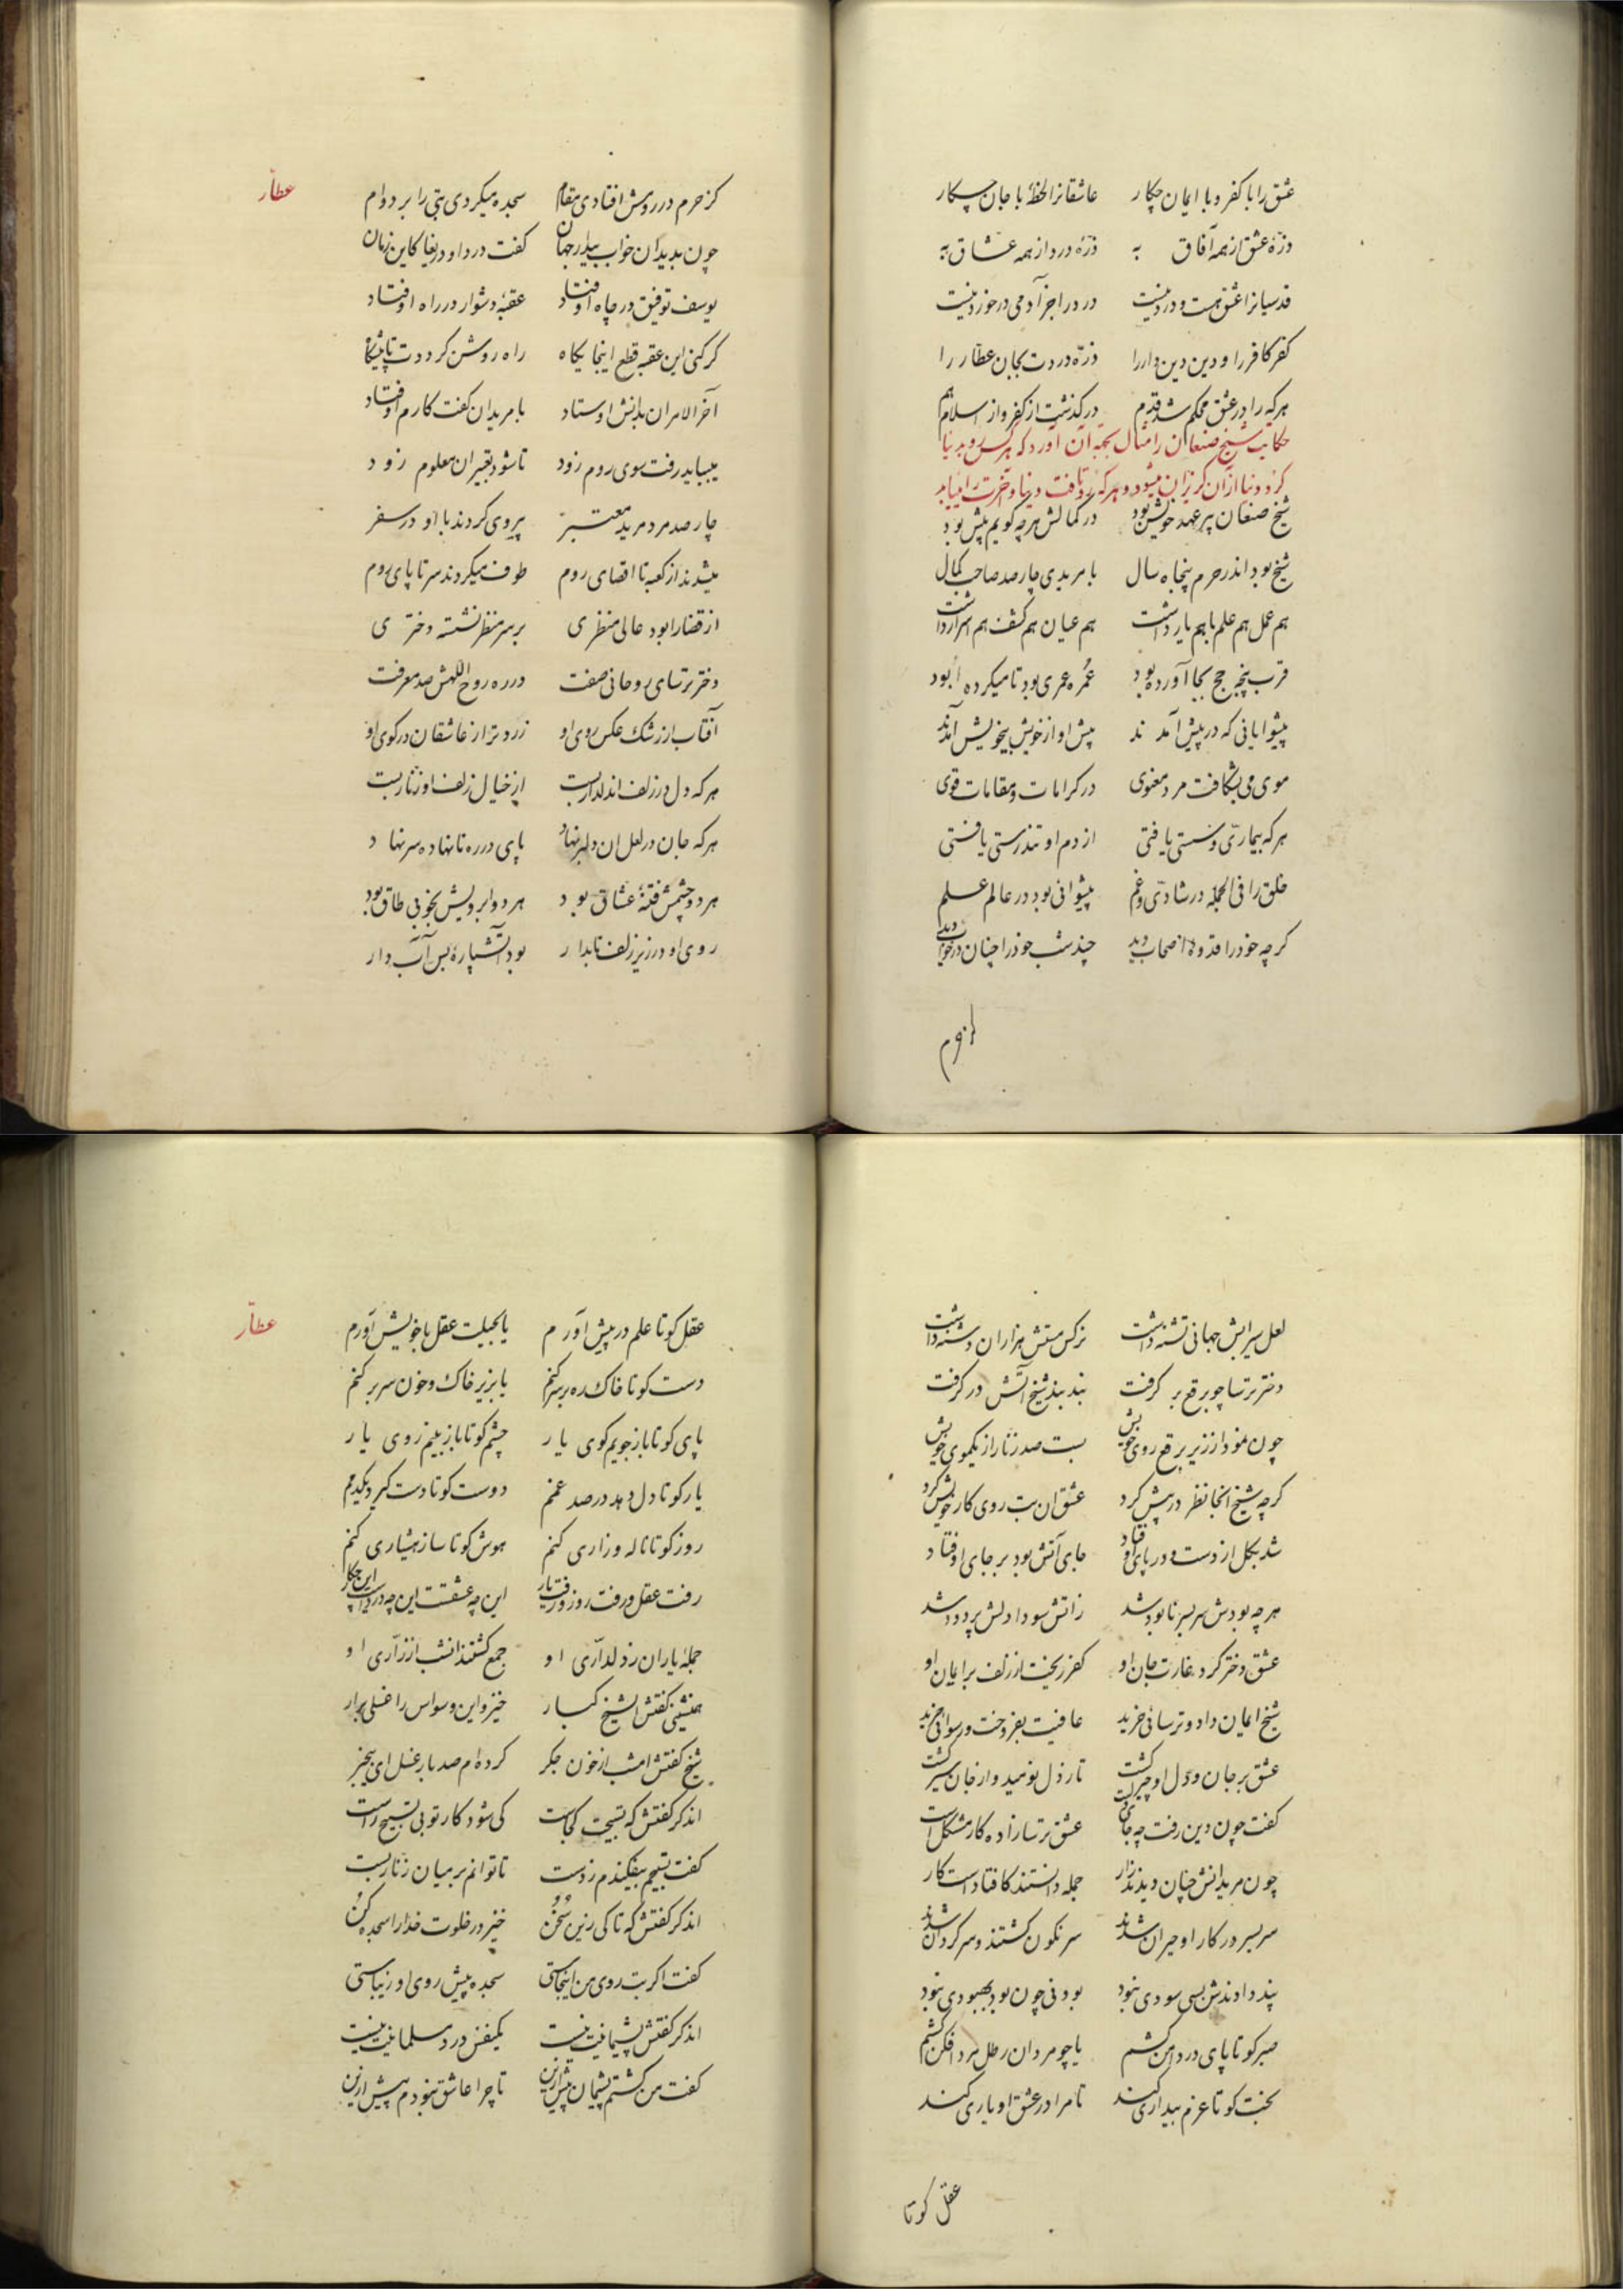 عشق را با کفر و با ایمان چکار عاشقانرا لحظهٔ با جان چکار
ذرّهٔ عشق از همه آفاق به ذرّهٔ درد از همه عشاق به
قدسیانرا عشق هست و درد نیست درد را جز آدمی در خورد نیست
کفر کافر را و دین دین‌دار را ذرّه دردت بجان عطّار را
هر که را در عشق محکم شد قدم در گذشت از کفر و از اسلام هم
حکایت شیخ صنعان را مثال بجهة آن آورد که هر کس رو بدنیا
کرد دنیا از آن گریزان میشود و هر که رد یافت دنیا و آخرت را مییابد
شیخ صنعان پیر عهد خویش بود در کمالش هر چه گویم بیش بود
شیخ بود اندر حرم پنجاه سال با مریدی چارصد صاحب کمال
هم عمل هم علم با هم یار داشت هم عیان هم کشف هم اسرار داشت
قرب پنجه حج بجا آورده بود عُمره عمری بود تا میکرده بود
پیشوایانی که در پیش آمدند پیش او از خویش بیخویش آمدند
موی می بشکافت مرد معنوی در کرامات و مقامات قوی
هر که بیماری و سستی یافتی از دم او تندرستی یافتی
خلق را فی الجمله در شادی و غم پیشوائی بود در عالم علم
گرچه خود را قدوهٔ اصحاب دید چند شب خود را چنان در خواب دید
کز حرم در روش افتادی مقام سجده میکردی بتی را بر دوام
عطّار
چون بدید ان خواب بیدار جهان گفت دردا و دریغا کاین زمان
یوسف توفیق در چاه اوفتاد عقبهٔ دشوار در راه اوفتاد
گر کنی این عقبه قطع اینجایگاه راه روشن گرددت تا پیشگاه
آخر الامر ان بدانش اوستاد با مریدان گفت کارم اوفتاد
میباید رفت سوی روم زود تا شود تعبیر ان معلوم زود
چارصد مرد مرید معتبر پیروی کردند با او در سفر
میشدند از کعبه تا اقصای روم طوف میکردند سر تا پای روم
از قضا را بود عالی منظری بر سر منظر نشسته دختری
دختر ترسای روحانی صفت در ره روح اللهش صد معرفت
آفتاب از رشک عکس روی او زردتر از عاشقان در کوی او
هر که دل در زلف ان دلدار بست از خیال زلف او زنّار بست
هر که جان در لعل ان دلبر نهاد پای در ره نانهاده سر نهاد
هر دو چشمش فتنهٔ عشاق بود هر دو ابرویش بخوبی طاق بود
روی او در زیر زلف تابدار بود آتشپارهٔ بس آبدار
لعل سیرابش جهانی تشنه داشت نرگس مستش هزاران دشنه داشت
دختر ترسا چو برقع بر گرفت بند بند شیخ آتش در گرفت
چون نمود از زیر برقع روی خویش بست صد زنّار از یکموی خویش
گرچه شیخ انجا نظر در پیش کرد عشق ان بت روی کار خویش کرد
شد بکل از دست و در پای او فتاد جای آتش بود بر جای اوفتاد
هر چه بودش سر بسر نابود شد زاتش سودا دلش پر دود شد
عشق دختر کرد غارت جان او کفر ریخت از زلف بر ایمان او
شیخ ایمان داد و ترسائی خرید عافیت بفروخت و رسوائی خرید
عشق بر جان و دل او چیر گشت تا ز دل نومید و از جان سیر گشت
گفت چون دین رفت چه جای دلست عشق ترسازاده کار مشکل است
چون مریدانش چنان دیدند زار جمله دانستند کافتاد است کار
سر بسر در کار او حیران شدند سرنگون گشتند و سرگردان شدند
پند دادندش بسی سودی نبود بودنی چون بود بهبودی نبود
صبر کو تا پای در دامن کشم یا چو مردان رطل مردافکن کشم
بخت کو تا عزم بیداری کند تا مرا در عشق او یاری کند
عقل کو تا
عقل کو تا علم در پیش آورم یا بحیلت عقل با خویش آورم
عطّار
دست کو تا خاک ره بر سر کنم یا بزیر خاک و خون سر بر کنم
پای کو تا باز جویم کوی یار چشم کو تا باز بینم روی یار
یار کو تا دل دهد در صد غمم دوست کو تا دست گیرد یکدمم
روز کو تا ناله و زاری کنم هوش کو تا ساز هشیاری کنم
رفت عقل و رفت روز و رفت یار این چه عشقست این چه درد است این چکار
جملهٔ یاران ز دلداری او جمع گشتند انشب از زاری او
همنشینی گفتش ای شیخ کبار خیز و این وسواس را غسلی برار
شیخ گفتش امشب از خون جگر کرده‌ام صد بار غسل ای بیخبر
اندگر گفتش که تسبیحت کجاست کی شود کار تو بی تسبیح راست
گفت تسبیحم بیفکندم ز دست تا توانم بر میان زنّار بست
اندگر گفتش که تا کی زین سُخُن خیز در خلوت خدا را سجده کُن
گفت اگر بت روی من اینجاستی سجده پیش روی او زیباستی
اندگر گفتش پشیمانیت نیست یکنفس درد مسلمانیت نیست
گفت من گشتم پشیمان پیش ازین تا چرا عاشق نبودم پیش ازین